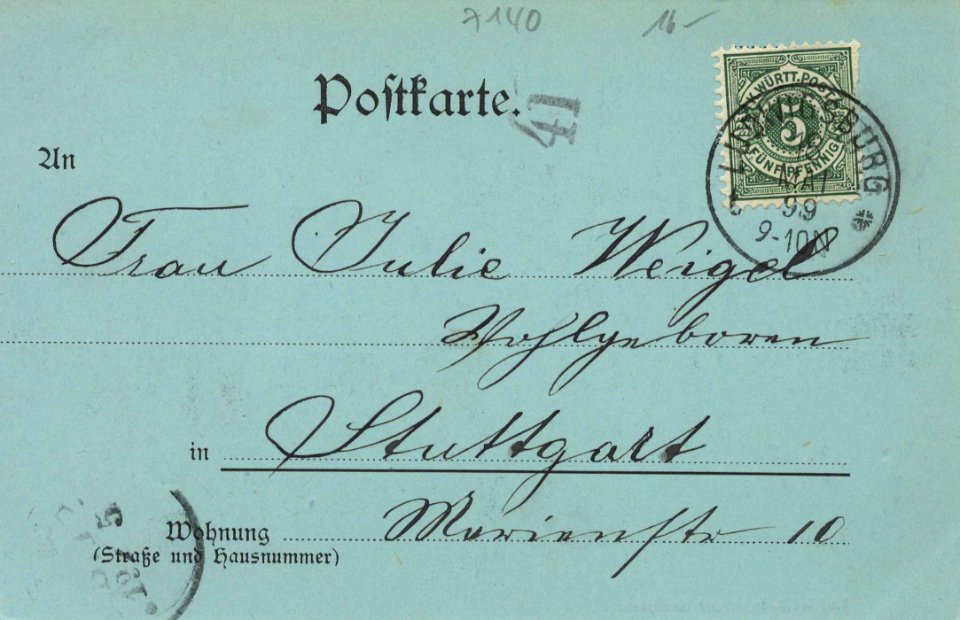 7140 16-
Postkarte.
41
K. WÜRTT. POST
5
FÜNF PFENNIG
LUDWIGSBURG
MAI
99
9-10N
An
Frau Julie Weigel
Wohlgeboren
in Stuttgart
Wohnung Marienstr 10
(Straße und Hausnummer)
5